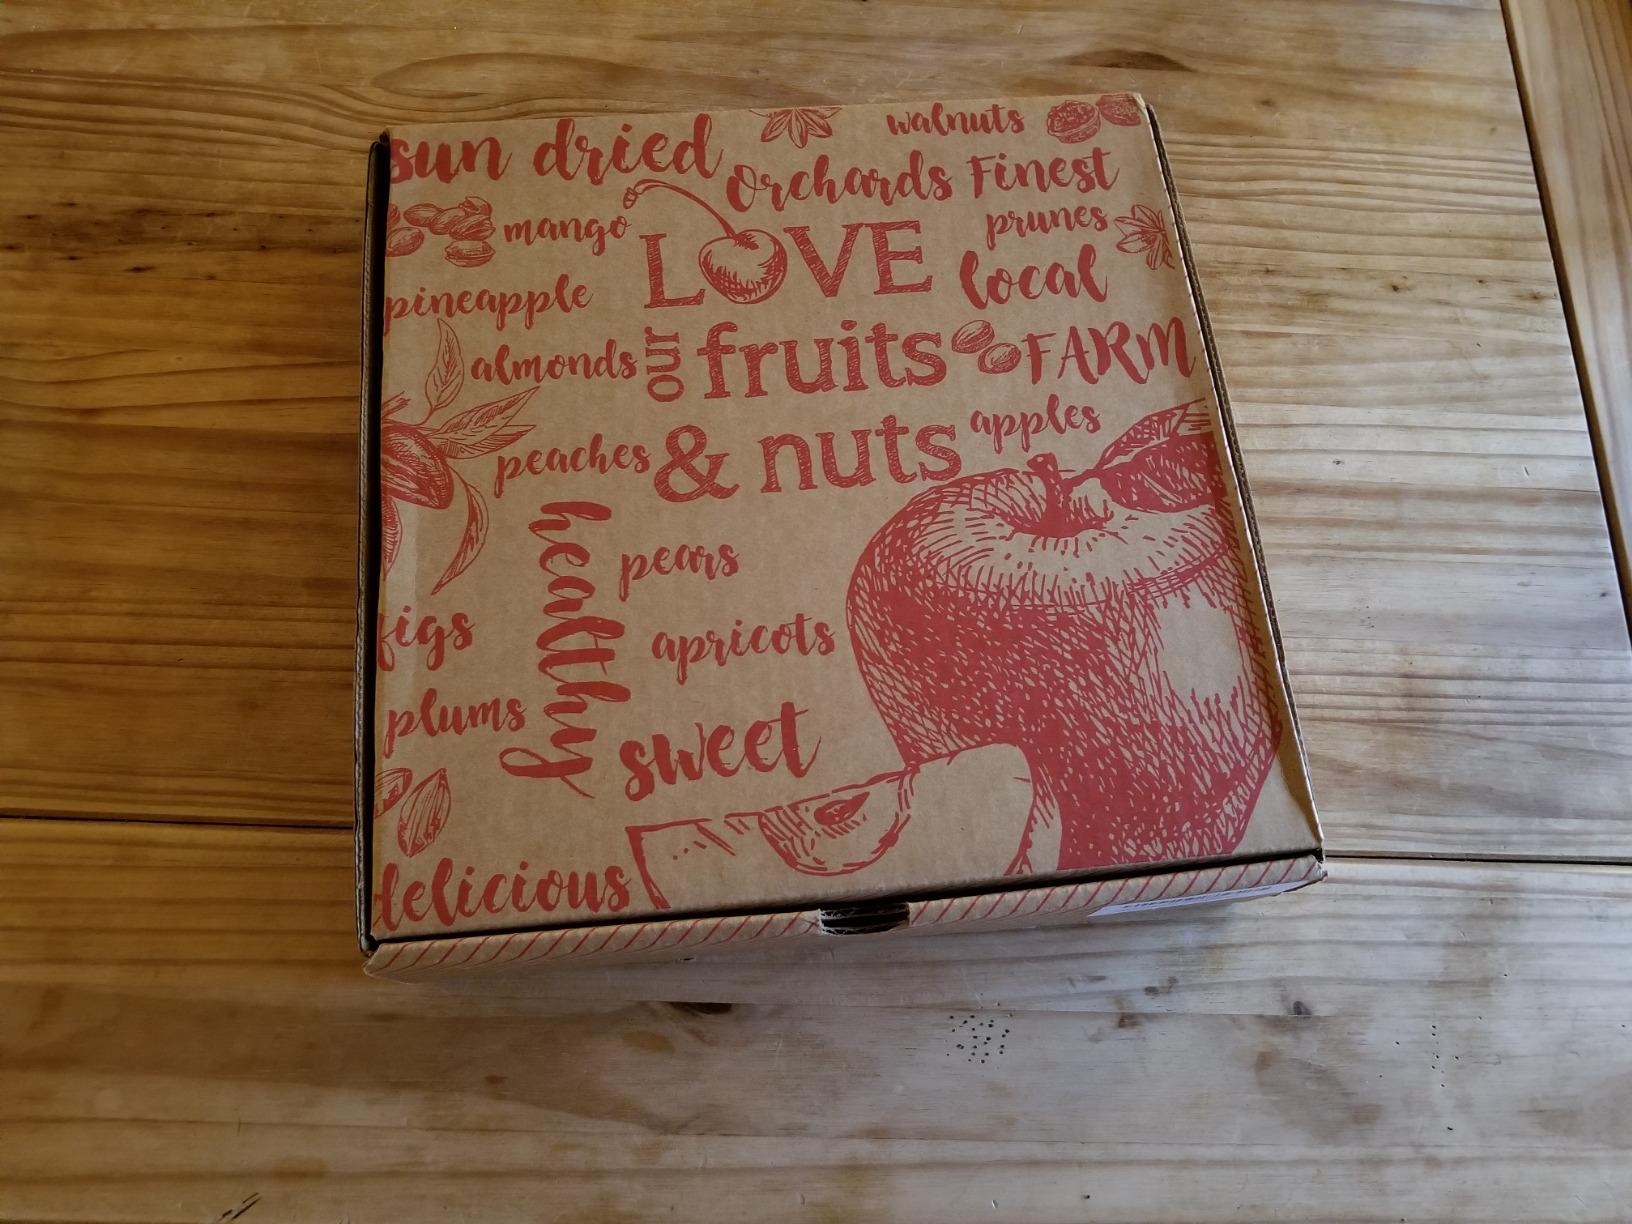 sun dried
walnuts
Orchards Finest
mango
prunes
LOVE
local
pineapple
our fruits
FARM
almonds
apples
peaches
& nuts
healthy
pears
figs
apricots
plums
sweet
delicious